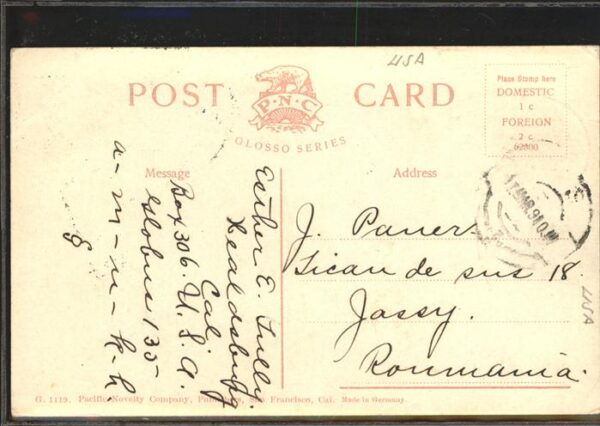 USA
POST CARD
P. N. C
GLOSSO SERIES
Place Stamp here
DOMESTIC
1 c
FOREIGN
2 c
62800
Message
Esther E. Tully.
Healdsburg
Cal.
Box 306. U.S.A.
Globus 135
a-m-u-k-h
&
Address
J. Paners
Ticau de sus 18.
Jassy.
Roumania.
USA
G. 1119. Pacific Novelty Company, Publishers, San Francisco, Cal. Made in Germany.